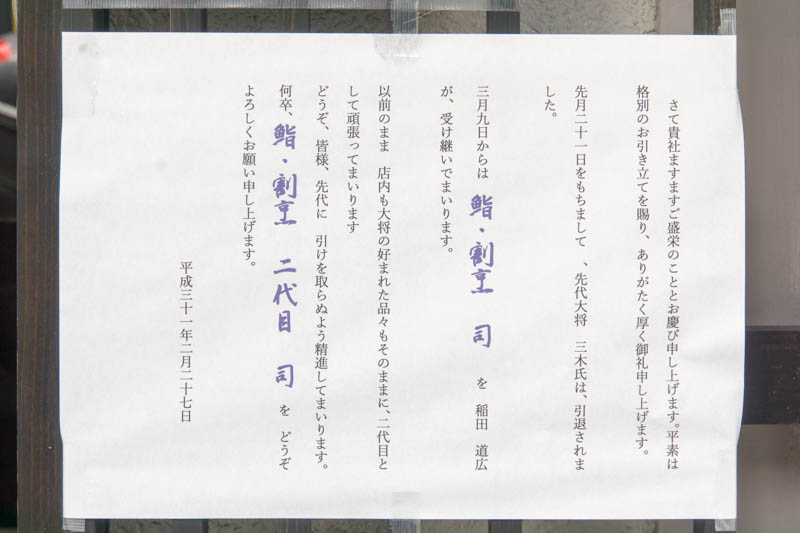 さて貴社ますますご盛栄のこととお慶び申し上げます。平素は
格別のお引き立てを賜り、ありがたく厚く御礼申し上げます。
先月二十一日をもちまして 、先代大将 三木氏は、引退されま
した。
三月九日からは 鮨・割烹 司 を 稲田 道広
が、受け継いでまいります。
以前のまま 店内も大将の好まれた品々もそのままに、二代目と
して頑張ってまいります
どうぞ、皆様、先代に 引けを取らぬよう精進してまいります。
何卒、鮨・割烹 二代目 司 を どうぞ
よろしくお願い申し上げます。
平成三十一年二月二十七日